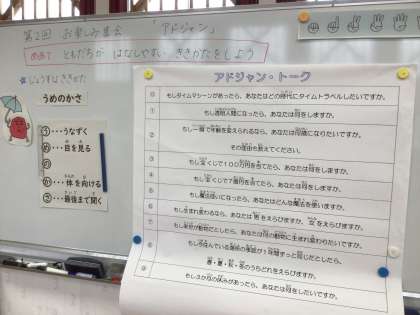 第2回 お楽しみ集会 「アドジャン」
めあて ともだちが はなしやすい ききかたをしよう
じょうずなききかた
うめのかさ
う・・・うなずく
め・・・目を見る
の・・・
か・・・体を向ける
さ・・・最後まで聞く
アドジャン・トーク
⓪ もしタイムマシーンがあったら、あなたはどの時代にタイムトラベルしたいですか。
① もし透明人間になったら、あなたは何をしますか。
② もし一瞬で年齢を変えられるなら、あなたは何歳になりたいですか。
その理由も教えてください。
③ もし宝くじで100万円を当てたら、あなたは何をしますか。
④ もし宝くじで7億円を当てたら、あなたは何をしますか。
⑤ もし魔法使いになったら、あなたはどんな魔法を使いますか。
⑥ もし生まれ変わるなら、あなたは男をえらびますか、女をえらびますか。
⑦ もし来世が動物だとしたら、あなたは何の動物に生まれ変わりたいですか。
⑧ もし
1年間ずっと同じだとしたら、
春・夏・秋・冬のうちどれをえらびますか。
⑨ もし3か月の休みがあったら、あなたは何をしたいですか。